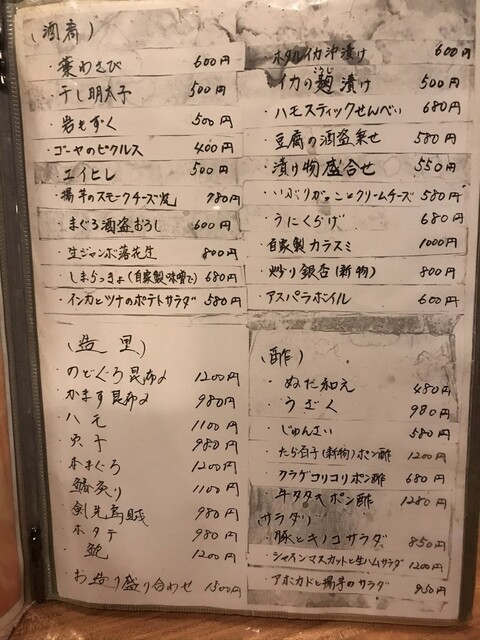 (酒肴)
・葉わさび 600円
・干し明太子 500円
・岩もずく 500円
・ゴーヤのピクルス 400円
・エイヒレ 500円
・揚芋のスモークチーズ 780円
・まぐろ酒盗おろし 600円
・生ジャンボ落花生 800円
・しまらっきょ(自家製味噌で) 680円
・インカとツナのポテトサラダ 580円
・ホタルイカ沖漬け 600円
・イカの麹漬け 500円
・ハモスティックせんべい 680円
・豆腐の酒盗乗せ 580円
・漬け物盛合せ 550円
・いぶりがっことクリームチーズ 580円
・うにくらげ 680円
・自家製カラスミ 1000円
・炒り銀杏(新物) 800円
・アスパラボイル 600円
(造里)
・のどぐろ昆布〆 1200円
・かます昆布〆 980円
・ハモ 1100円
・穴子 980円
・本まぐろ 1200円
・鰆炙り 1100円
・剣先烏賊 980円
・ホタテ 980円
・鮑 1200円
・お造り盛り合わせ 1500円
(酢)
・ぬた和え 480円
・うざく 980円
・じゅんさい 580円
・たら白子(新物)ポン酢 1200円
・クラゲコリコリポン酢 680円
・牛タタキポン酢 1280円
(サラダ)
・豚とキノコサラダ 850円
・シャインマスカットと生ハムサラダ 1200円
・アボカドと揚芋のサラダ 950円